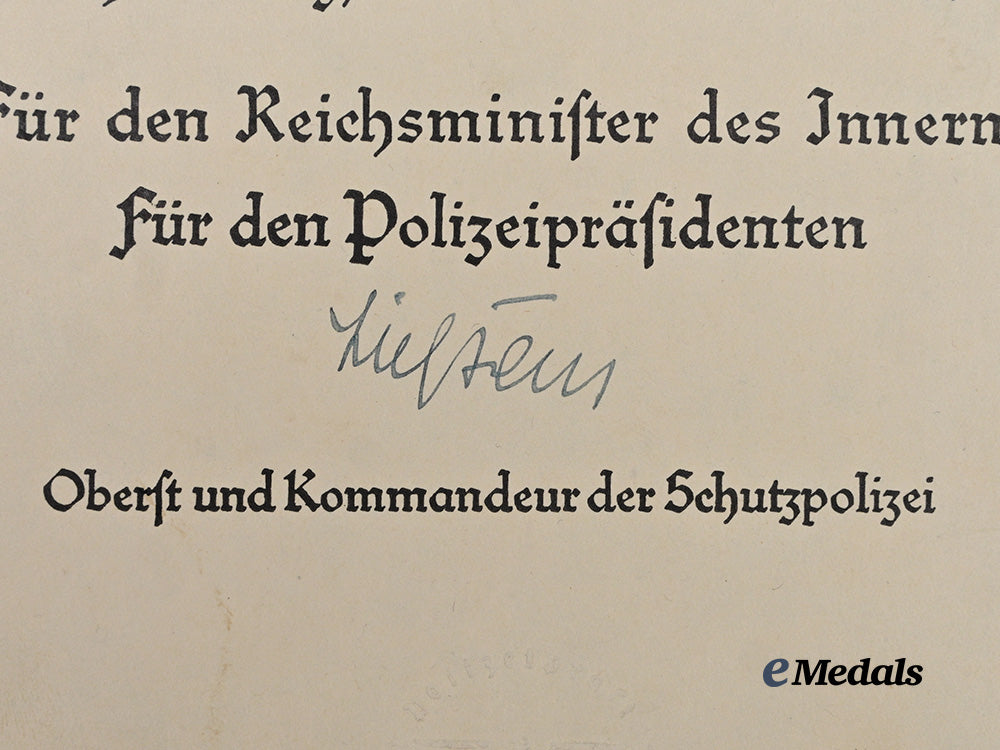 Für den Reichsminiſter des Innern
Für den Polizeipräſidenten
Oberſt und Kommandeur der Schutzpolizei
eMedals